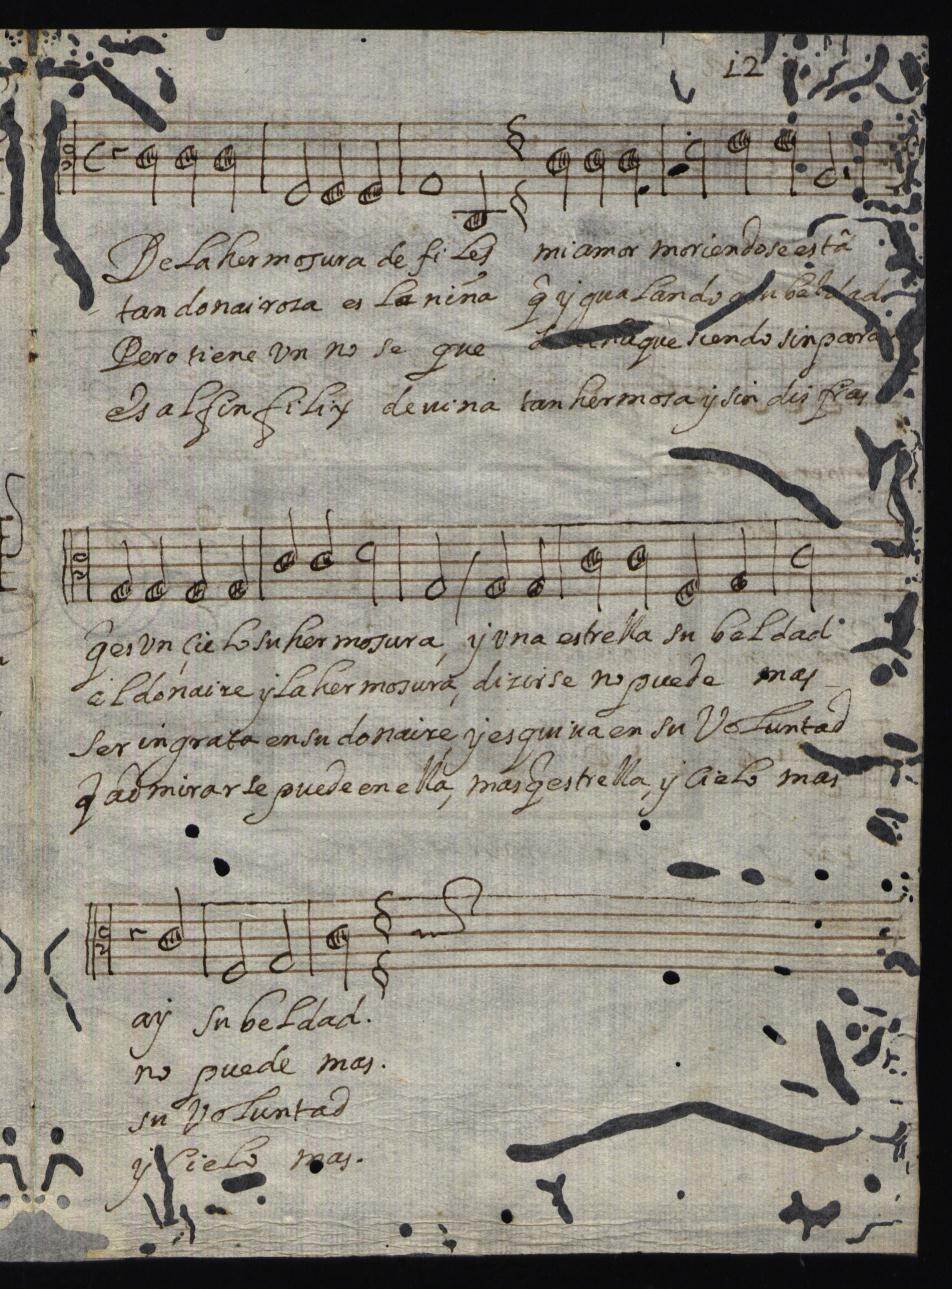 12
De la hermosura de files mi amor moriendose está
tan donairosa es la niña q̃ y gualando a su beldad
Pero tiene vn no se que que siendo sin para
es al fin filix deuina tan hermosa y sin disfras
q̃ es vn çielo su hermosura, y vna estrella su beldad
el donaire y la hermosura, dizirse no puede mas
ser ingrata en su donaire, y esquiua en su Voluntad
q̃ admirarse puede en ella, mas q̃ estrella, y Cielo mas
ay su beldad.
no puede mas.
su Voluntad
y Cielo mas.